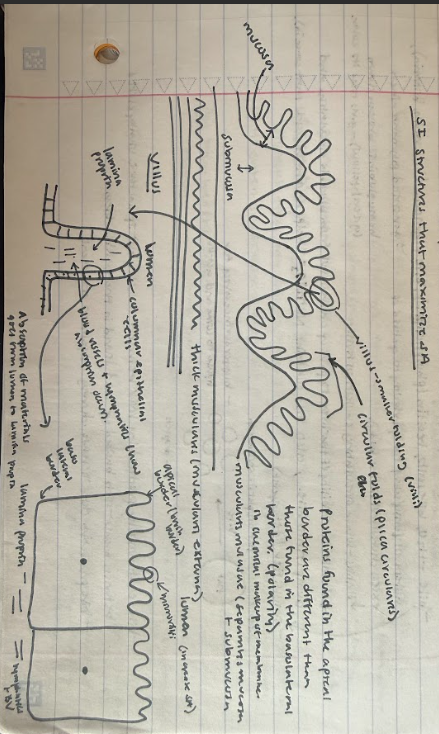 SI Structures that maximize SA
mucosa
submucosa
villus - smaller folding (villi)
circular folds (plica circulares)
Proteins found in the apical
border are different than
those found in the basolateral
border. (polarity)
in chemical makeup of membrane.
muscularis mucosae (separates mucosa
+ submucosa
thick muscularis (muscularis externa)
villus
lumen
lamina
propria
columnar epithelial
cells
blood vessels + lymphatics (how
absorption occurs
Absorption of materials
goes from lumen to lamina propria
apical
border (brush
border)
lumen (increase SA)
microvilli
baso
lateral
border
lamina propria
lymphatics
+ BV